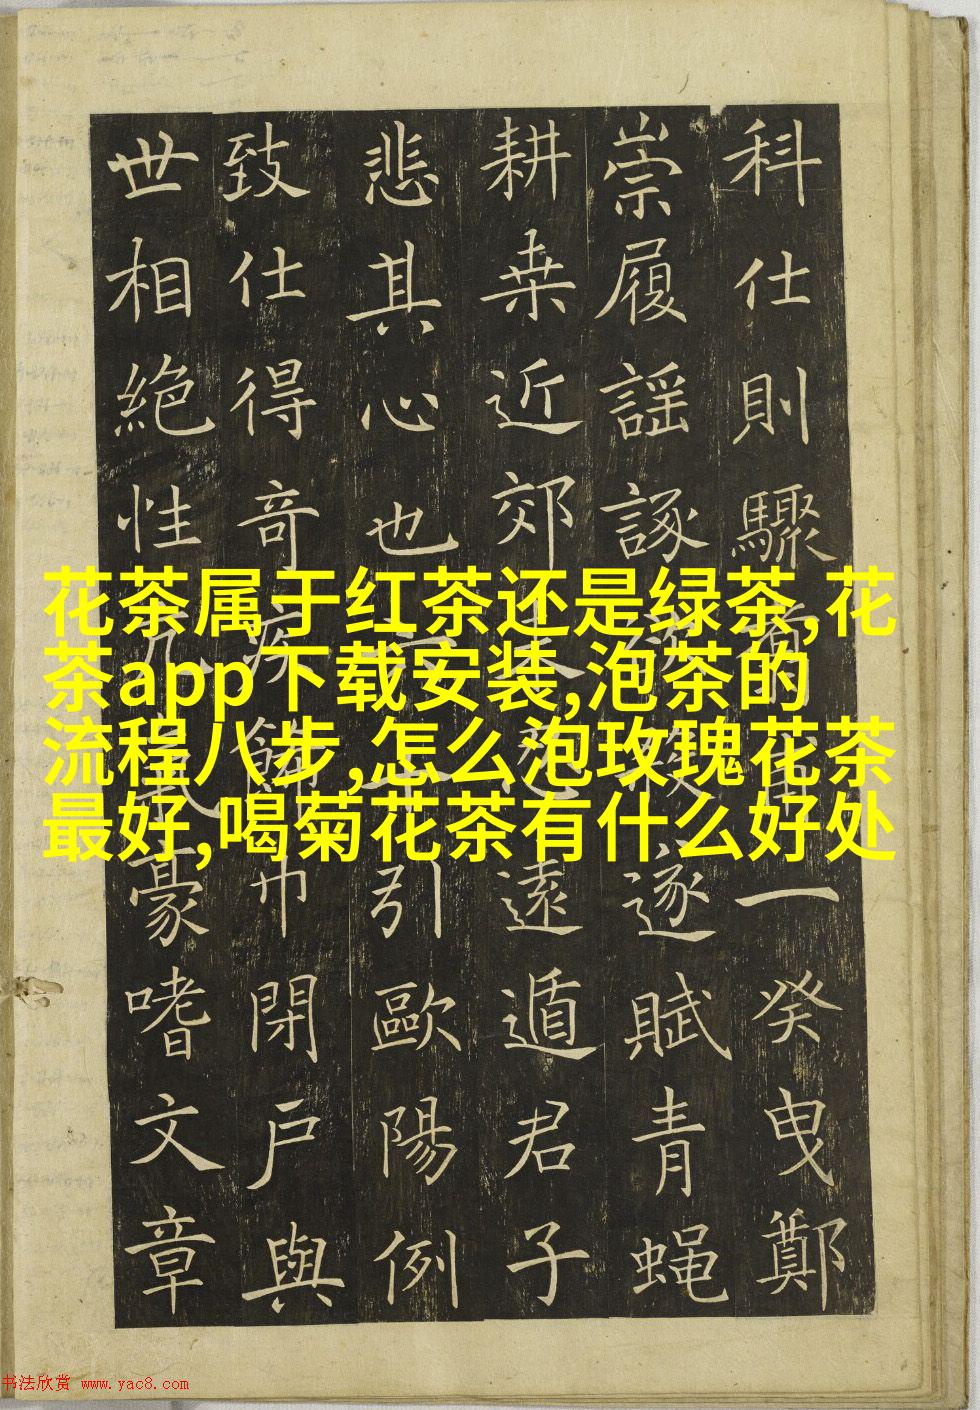 科仕則驟
一癸曳鄭
崇履謡諑
逐賦青蝇
耕桒近郊
遠遁君子
悲其心也
引歐陽例
致仕得奇疾
巾閉戶與
世相絶性
豪嗜文章
花茶属于红茶还是绿茶,花
茶app下载安装,泡茶的
流程八步,怎么泡玫瑰花茶
最好,喝菊花茶有什么好处
书法欣赏 www.yac8.com